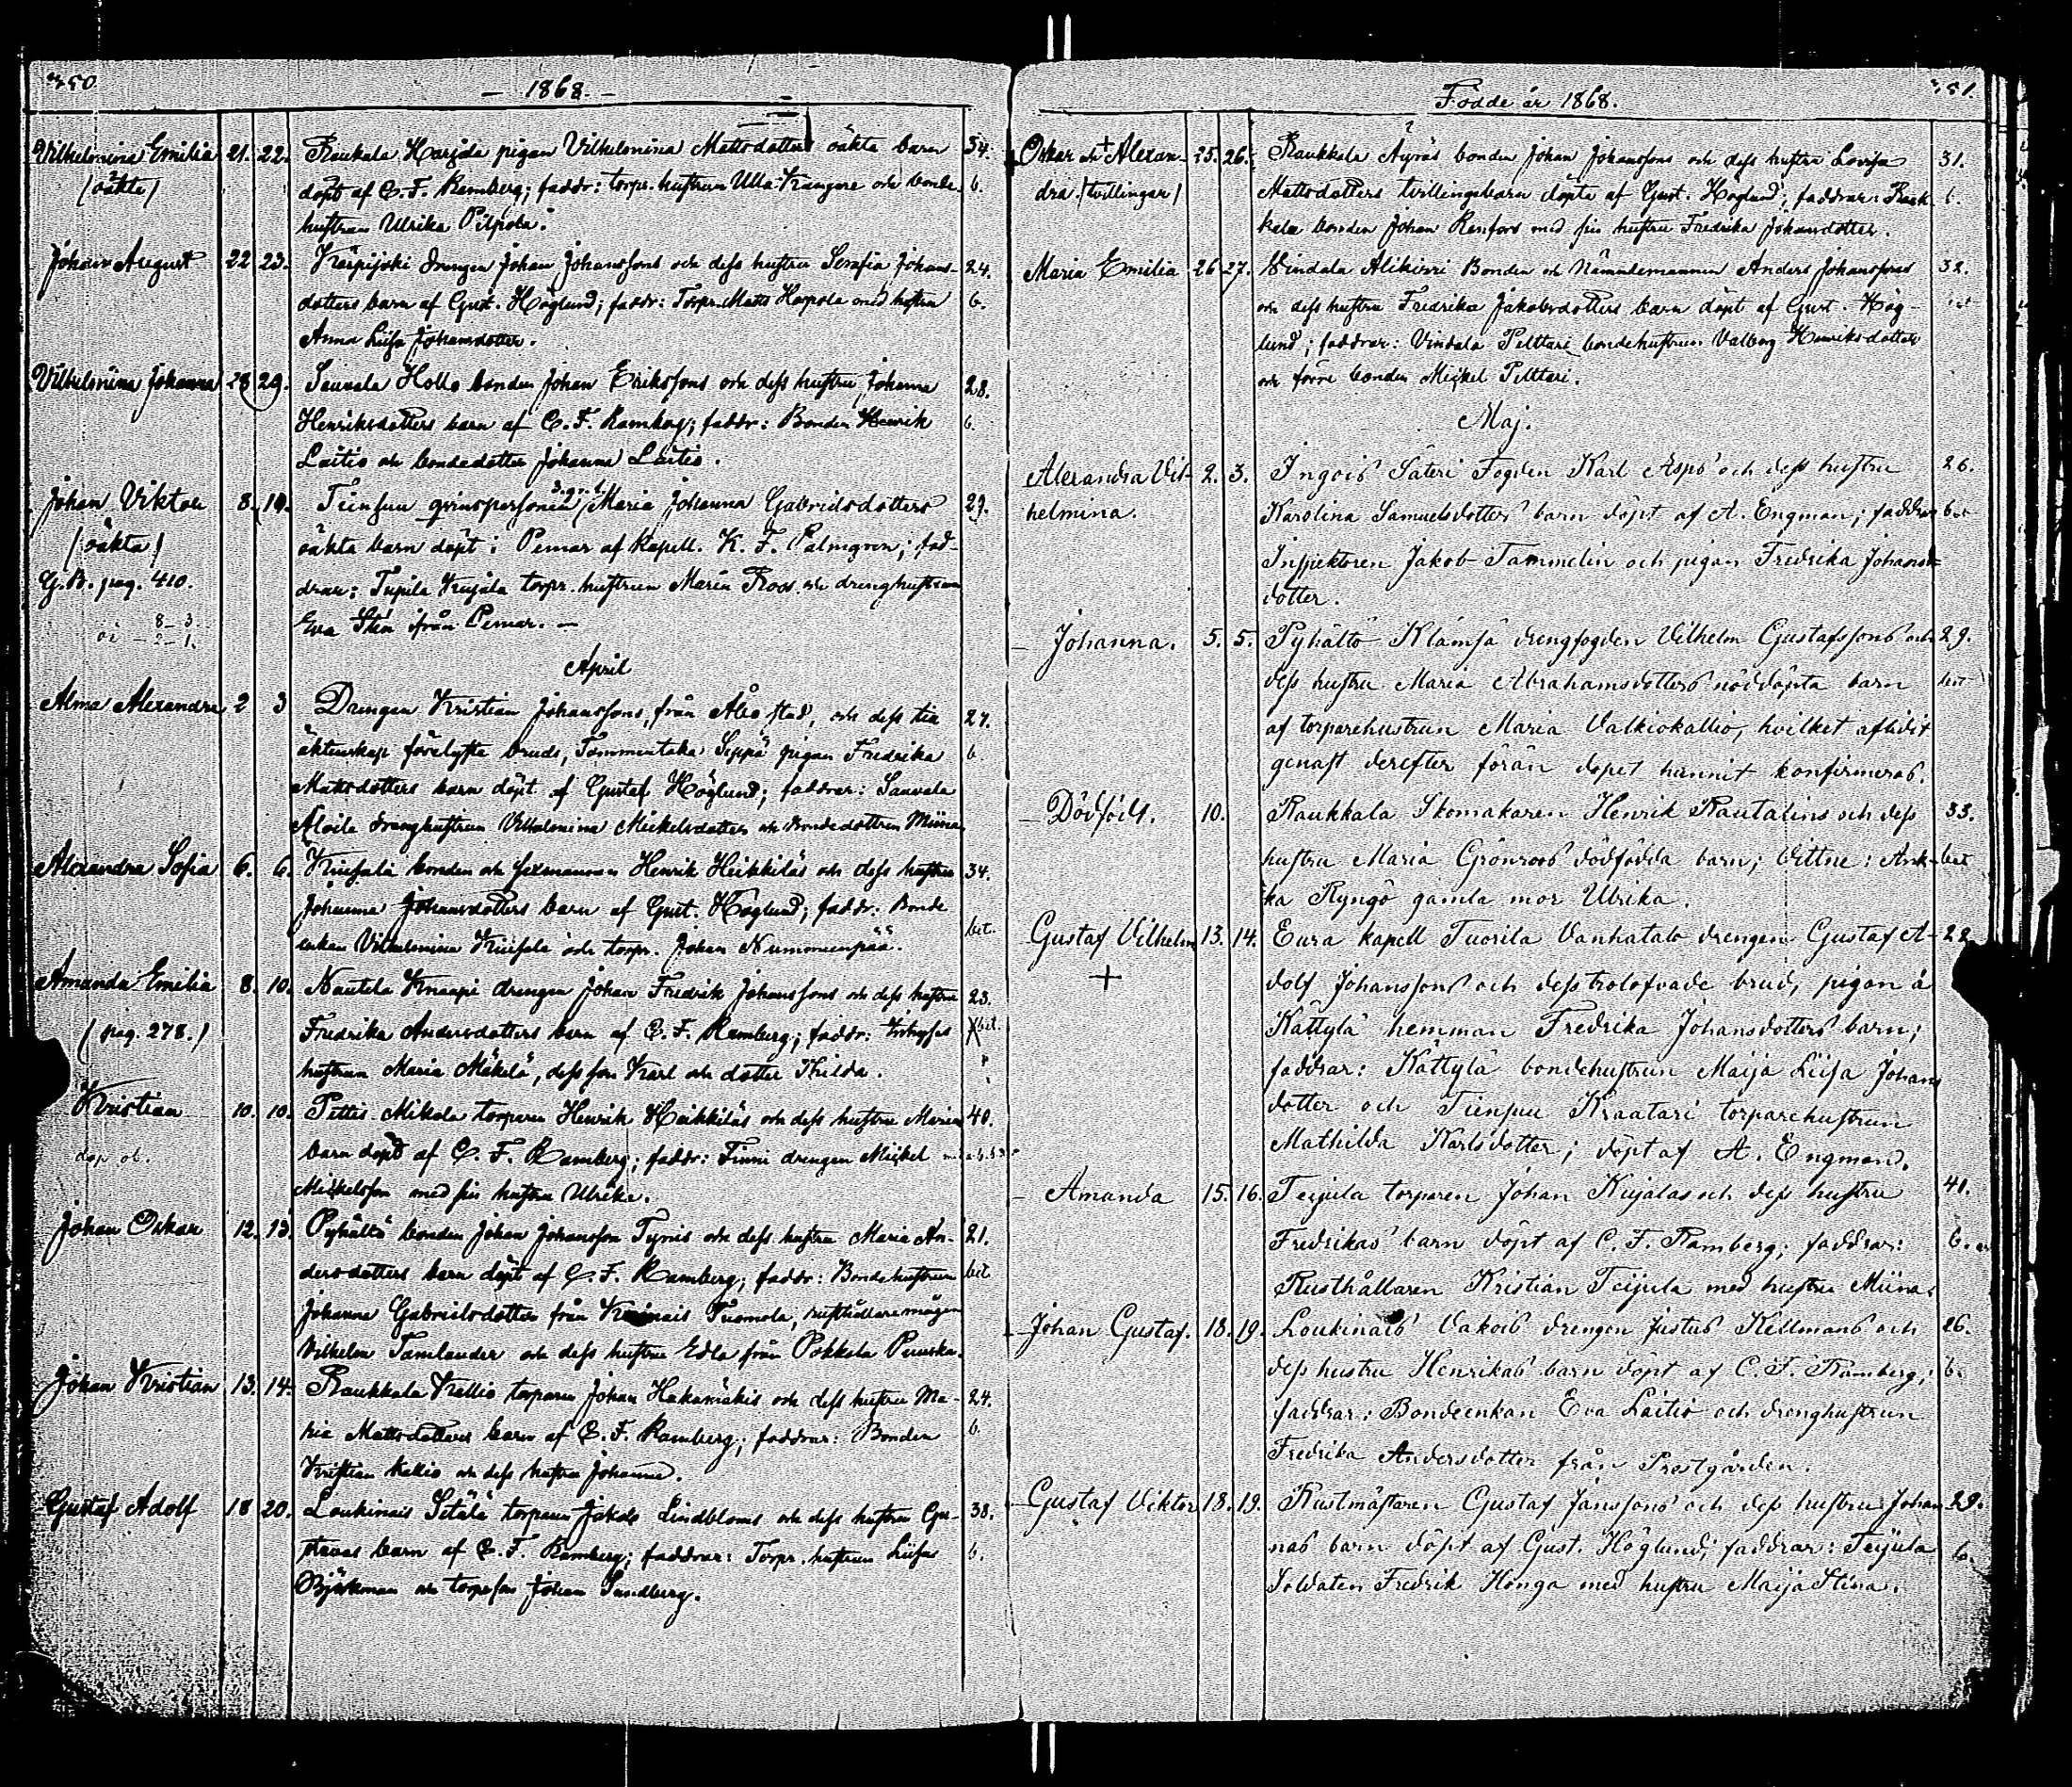 350
— 1868. —
Vilhelmina Emilia 21. 22. Raukala Harjda pigan Vilhelmina Mattsdotters oäkta barn 34.
(oäkta) döpt af C. F. Ramberg; faddr: torpr. hustrun Ulla Kangore och bonde- b.
hustrun Ulrika Pilpola.
Johan August 22 23. Karpijoki drengen Johan Johanssons och dess hustru Serafia Johans- 24.
dotters barn af Gust. Höglund; faddr: Torpr. Matts Harpola med hustru b.
Anna Liisa Johansdotter.
Vilhelmina Johanna 28 29. Sauvala Hollo bonden Johan Erikssons och dess hustru Johanna 28.
Henriksdotters barn af C. F. Ramberg; faddr: Bonden Henrik b.
Laitio och bondedotter Johanna Laitio.
Johan Viktor 8. 10. Tiensuu qvinspersonen Maria Johanna Gabrielsdotters 29.
(oäkta) oäkta barn döpt i Pemar af Kapell. K. F. Palmgren; fad-
G.B. pag. 410. drar: Tupila Kujala torpr. hustrun Maria Roos och drenghustrun
8-3
oä - 2-1. Eva Sten från Pemar. —
April
Alma Alexandra 2 3 Drengen Kristian Johanssons, från Åbo stad, och dess till 27.
äktenskap förelysta brud, Tommentaka Seppä pigan Fredrika b.
Mattsdotters barn döpt af Gustaf Höglund; faddrar: Sauvala
Aloila drenghustrun Vilhelmina Mickelsdotter och bondedottren Miina
Alexandra Sofia 6. 6. Kriisala bonden och sexmannen Henrik Heikkiläs och dess hustru 34.
Johanna Johansdotters barn af Gust. Höglund; faddr: Bonde
enkan Vilhelmina Kriisala och torpr. Johan Nummenpää. bet.
Amanda Emilia 8. 10. Nautela Knaapi drengen Johan Fredrik Johanssons och dess hustru 23.
(pag. 278.) Fredrika Andersdotters barn af C. F. Ramberg; faddr: bet.
hustrun Maria Mäkelä, dess son Karl och dotter Hilda.
Kristian 10. 10. Pettis Mikola torparen Henrik Heikkiläs och dess hustru Marias 40.
döp ob. barn döpt af C. F. Ramberg; faddr: Finni drengen Mickel
Mickelsson med sin hustru Ulrika.
Johan Oskar 12. 13. Pyhältö bonden Johan Johansson Tynis och dess hustru Maria An- 21.
dersdotters barn döpt af C. F. Ramberg; faddr: Bondehustrun bet.
Johanna Gabrielsdotter från Kairais Tuomola, rusthållaremågen
Vilhelm Tamlander och dess hustru Edla från Pokkola Peruska.
Johan Kristian 13. 14. Raukkala Kallio torparen Johan Hakamäkis och dess hustru Ma- 24.
ria Mattsdotters barn af C. F. Ramberg; faddrar: Bonden b.
Kristian Kallio och dess hustru Johanna.
Gustaf Adolf 18 20. Loukinais Setälä torparen Jakob Lindbloms och dess hustru Gu- 38.
stavas barn af C. F. Ramberg; faddrar: Torpr. hustrun Liisa b.
Björkman och torpason Johan Sandberg.
351.
Födde år 1868.
Oskar och + Alexan- 25. 26. Raukkala Äyräs bonden Johan Johanssons och dess hustru Lovisa 31.
dra. (tvillingar) Mattsdotters tvillingebarn döpta af Gust. Höglund; faddrar: Rauk- b.
kala bonden Johan Renfors med sin hustru Fredrika Johansdotter.
Maria Emilia 26 27. Vindala Alikirri Bonden och Nämndemannen Anders Johanssons 32.
och dess hustru Fredrika Jakobsdotters barn döpt af Gust. Hög-
lund; faddrar: Vindala Pelttari bondehustrun Valborg Henriksdotter
och förre bonden Mickel Pelttari.
Maj.
Alexandra Vil- 2. 3. Ingois Säteri Fogden Karl Aspö och dess hustru 26.
helmina. Karolina Samuelsdotters barn döpt af A. Engman; faddrar bet
Inspektoren Jakob Tammelin och pigan Fredrika Johans-
dotter.
– Johanna. 5. 5. Pyhältö Klämsä drengfogden Vilhelm Gustafssons och 29.
dess hustru Maria Abrahamsdotters nöddöpta barn bet
af torparehustrun Maria Valkiokallio, hvilket aflidit
genast derefter förän dopet hunnit konfirmeras.
– Dödfödt. 10. Raukkala Skomakaren Henrik Rautalins och dess 33.
hustru Maria Grönroos dödfödda barn; Vittne: Ank- bet
ka Ryngö gamla mor Ulrika.
– Gustaf Vilhelm 13. 14. Eura kapell Tuorila Vanhatalo drengen Gustaf A- 22
+ dolf Johanssons och dess trolofvade brud, pigan å
Kättylä hemman Fredrika Johansdotters barn;
faddrar: Kättylä bondehustrun Maija Liisa Johans
dotter och Tiensuu Kraatari torparehustrun
Mathilda Karlsdotter; döpt af A. Engman.
– Amanda 15. 16. Teijula torparen Johan Kujalas och dess hustru 41.
Fredrikas barn döpt af C. F. Ramberg; faddrar: b.
Rusthållaren Kristian Teijula med hustru Miina.
– Johan Gustaf. 18. 19. Loukinais Vakois drengen Justus Kellmans och 26.
dess hustru Henrikas barn döpt af C. F. Ramberg; b.
faddrar: Bondeenkan Eva Laitio och drenghustrun
Fredrika Andersdotter från Prestgården.
– Gustaf Viktor 18. 19. Rustmästaren Gustaf Janssons och dess hustru Johan 29.
nas barn döpt af Gust. Höglund; faddrar: Teijula b.
Soldaten Fredrik Honga med hustru Maija Stina.